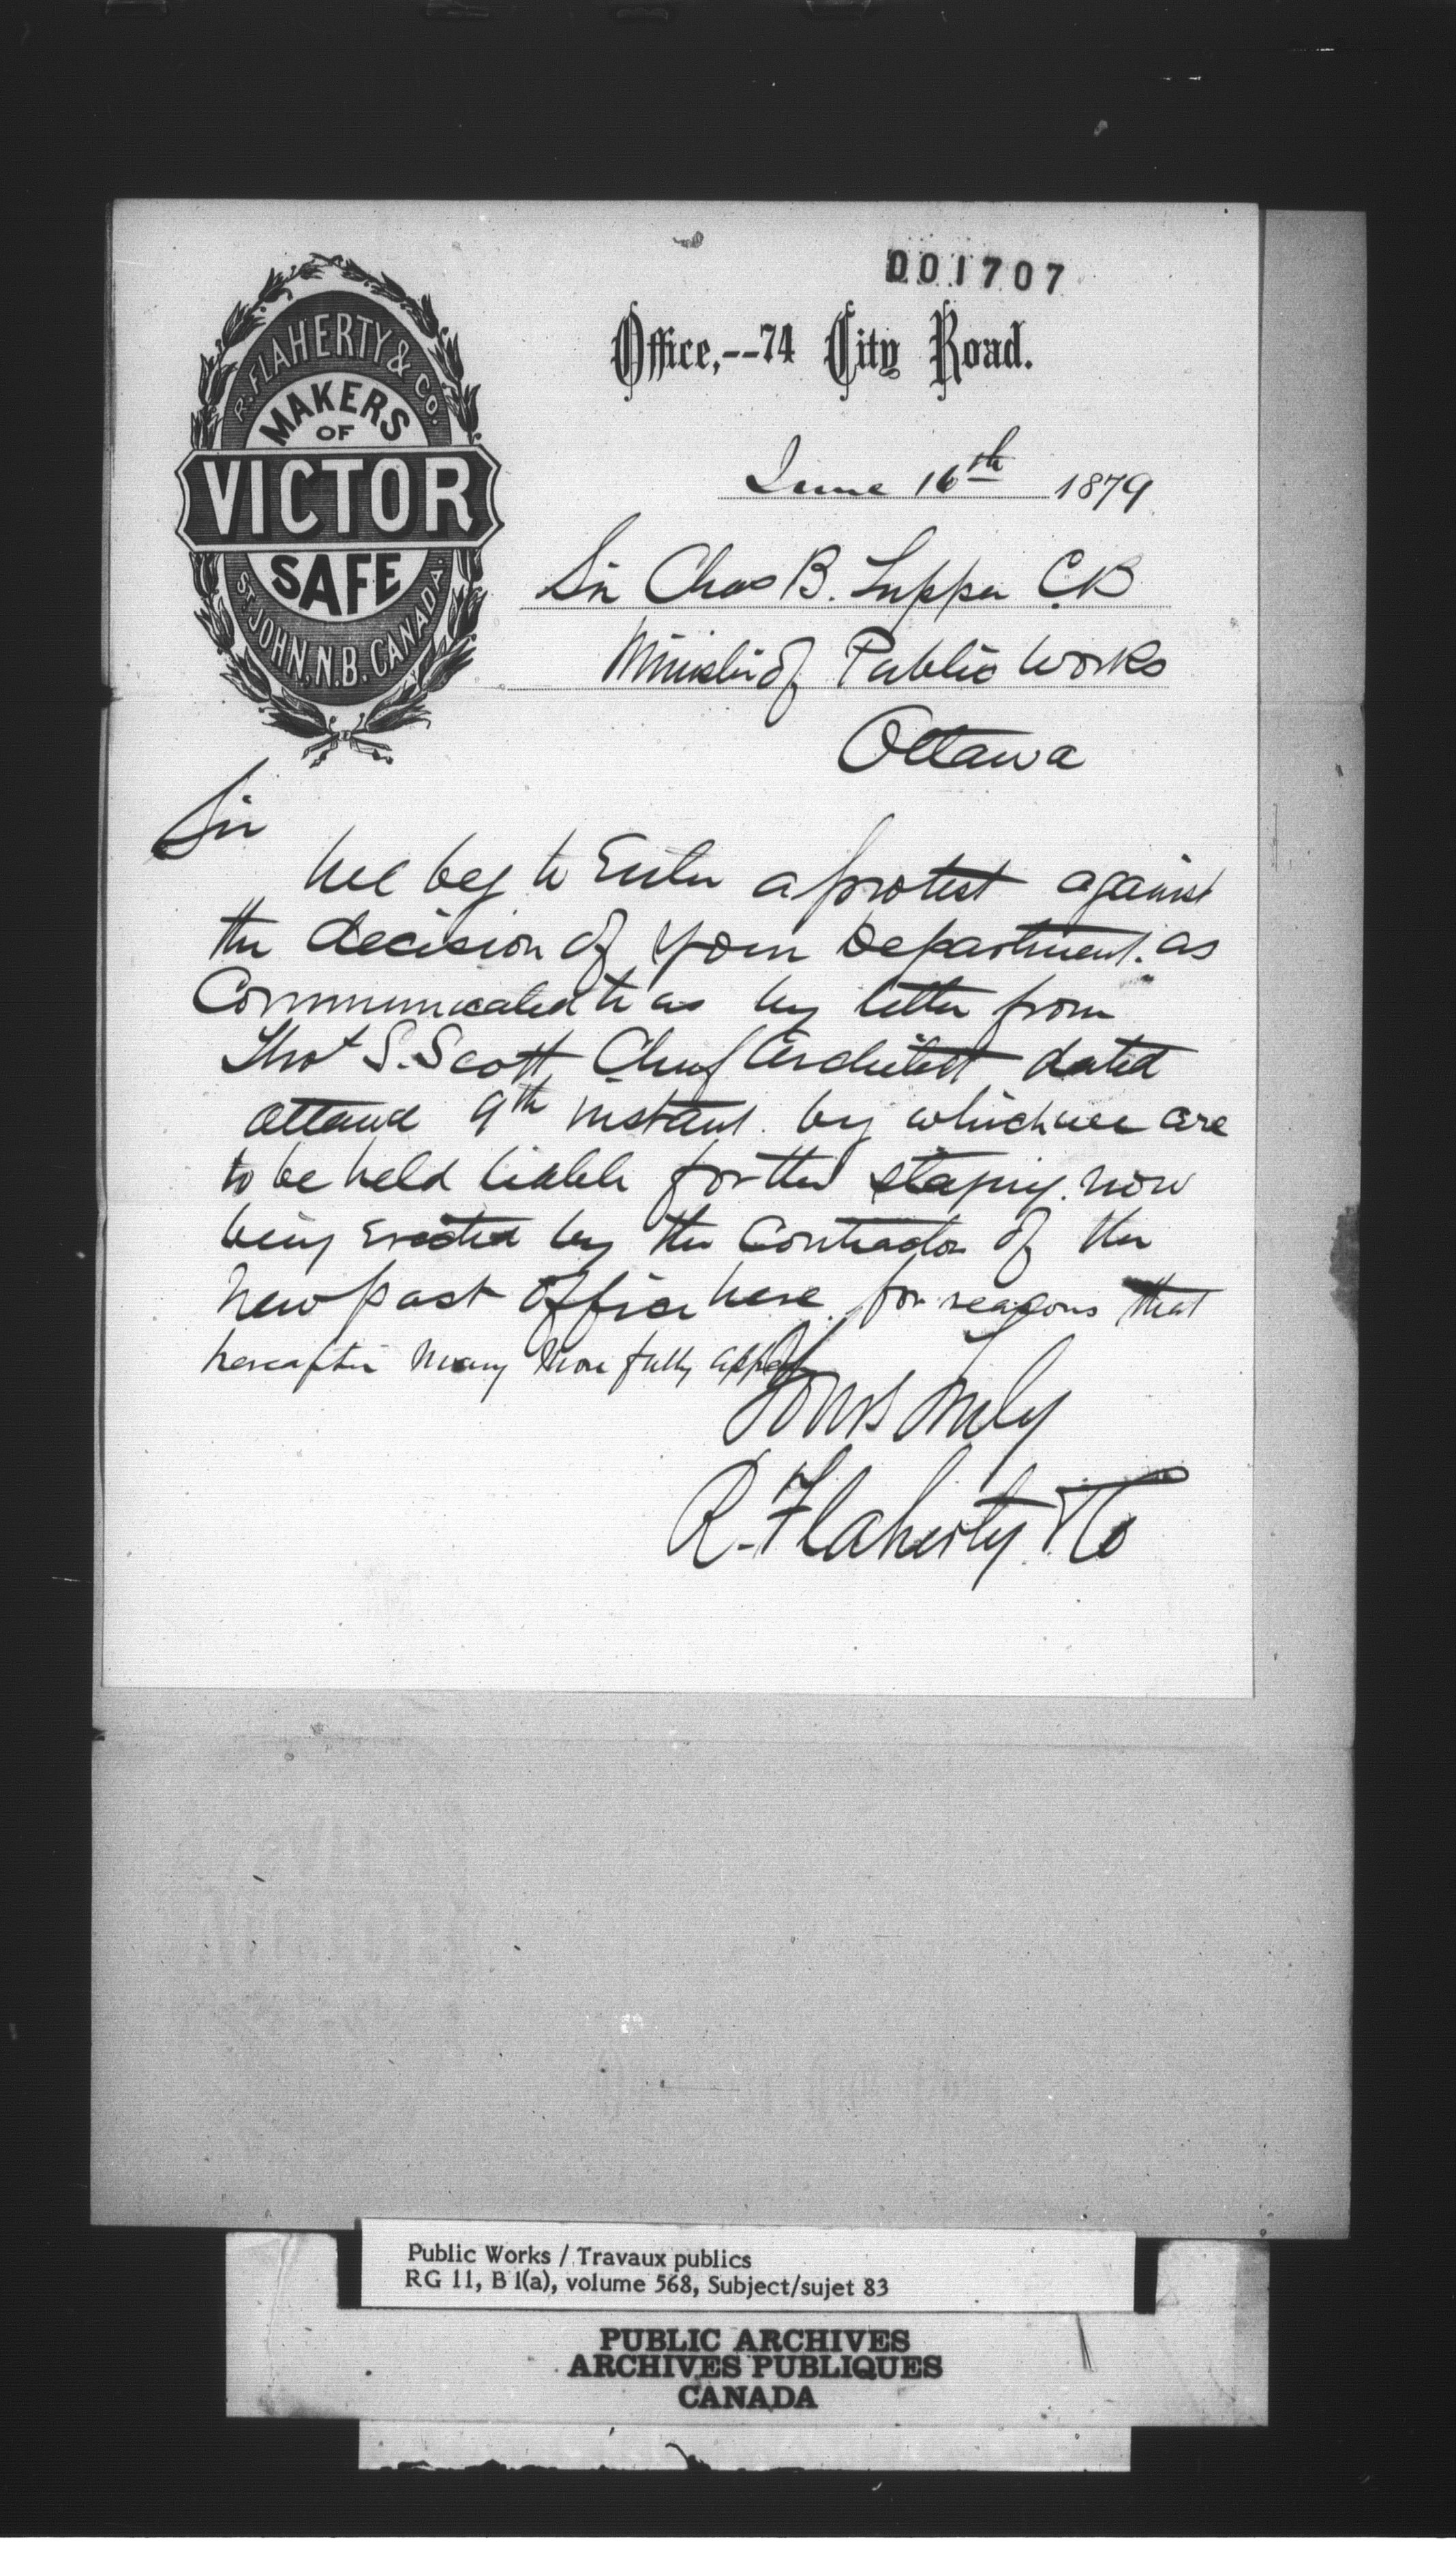 001707
R. FLAHERTY & CO.
MAKERS
OF
VICTOR
SAFE
ST. JOHN. N.B. CANADA.
Office,--74 City Road.
June 16th 1879
Sir Chas B. Tupper C.B
Minister of Public Works
Ottawa
Sir
We beg to Enter a protest against
the decision of your Department. as
Communicated to us by letter from
Thos S. Scott Chief Architect dated
Ottawa 9th instant. by which wee are
to be held liable for the staging. now
being Erected by the Contractor of the
New post Office here for reasons that
hereafter may more fully appear
Yours Truly
R. Flaherty & Co
Public Works / Travaux publics
RG 11, B 1(a), volume 568, Subject/sujet 83
PUBLIC ARCHIVES
ARCHIVES PUBLIQUES
CANADA